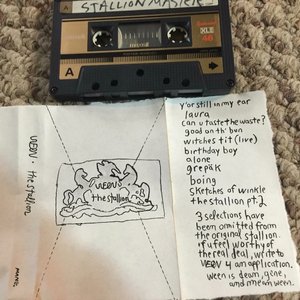 STALLION MASTER
XLII
A
y'or still in my ear
laura
can u taste the waste?
good on th' bun
witches tit (live)
birthday boy
alone
grepäk
boing
sketches of winkle
the stallion pt. 2
3 selections have
been omitted from
the original stallion.
if u feel worthy of
the real deal, write to
WEEN 4 an application.
ween is dean, gene,
and mean ween.
WEEN
the stallion
WEEN · the stallion